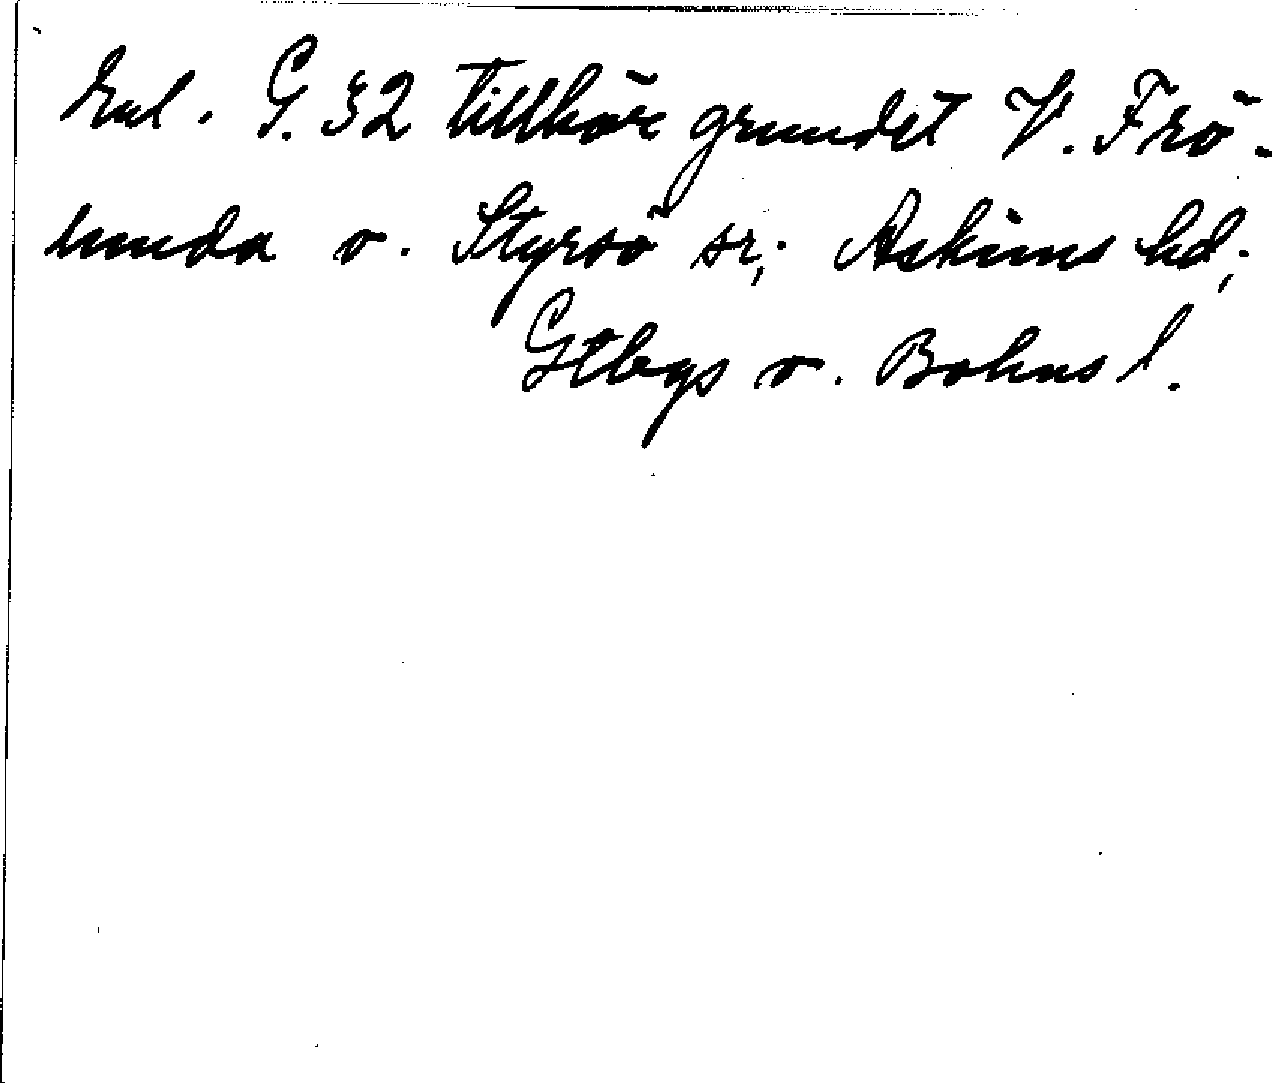 Enl. G. 32 tillhör grundet V. Frö-
lunda o. Styrsö sr; Askims hd;
Gtbgs o. Bohus l.